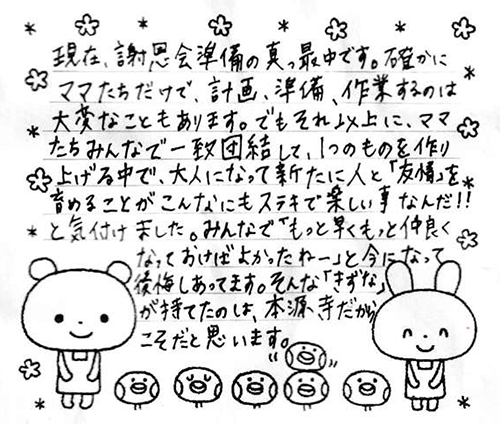 現在、謝恩会準備の真っ最中です。確かに
ママたちだけで、計画、準備、作業するのは
大変なこともあります。でもそれ以上に、ママ
たちみんなで一致団結して、1つのものを作り
上げる中で、大人になって新たに人と「友情」を
育めることがこんなにもステキで楽しい事なんだ!!
と気付けました。みんなで「もっと早くもっと仲良く
なっておけばよかったねー」と今になって
後悔しあってます。そんな「きずな」
が持てたのは、本源寺だから
こそだと思います。